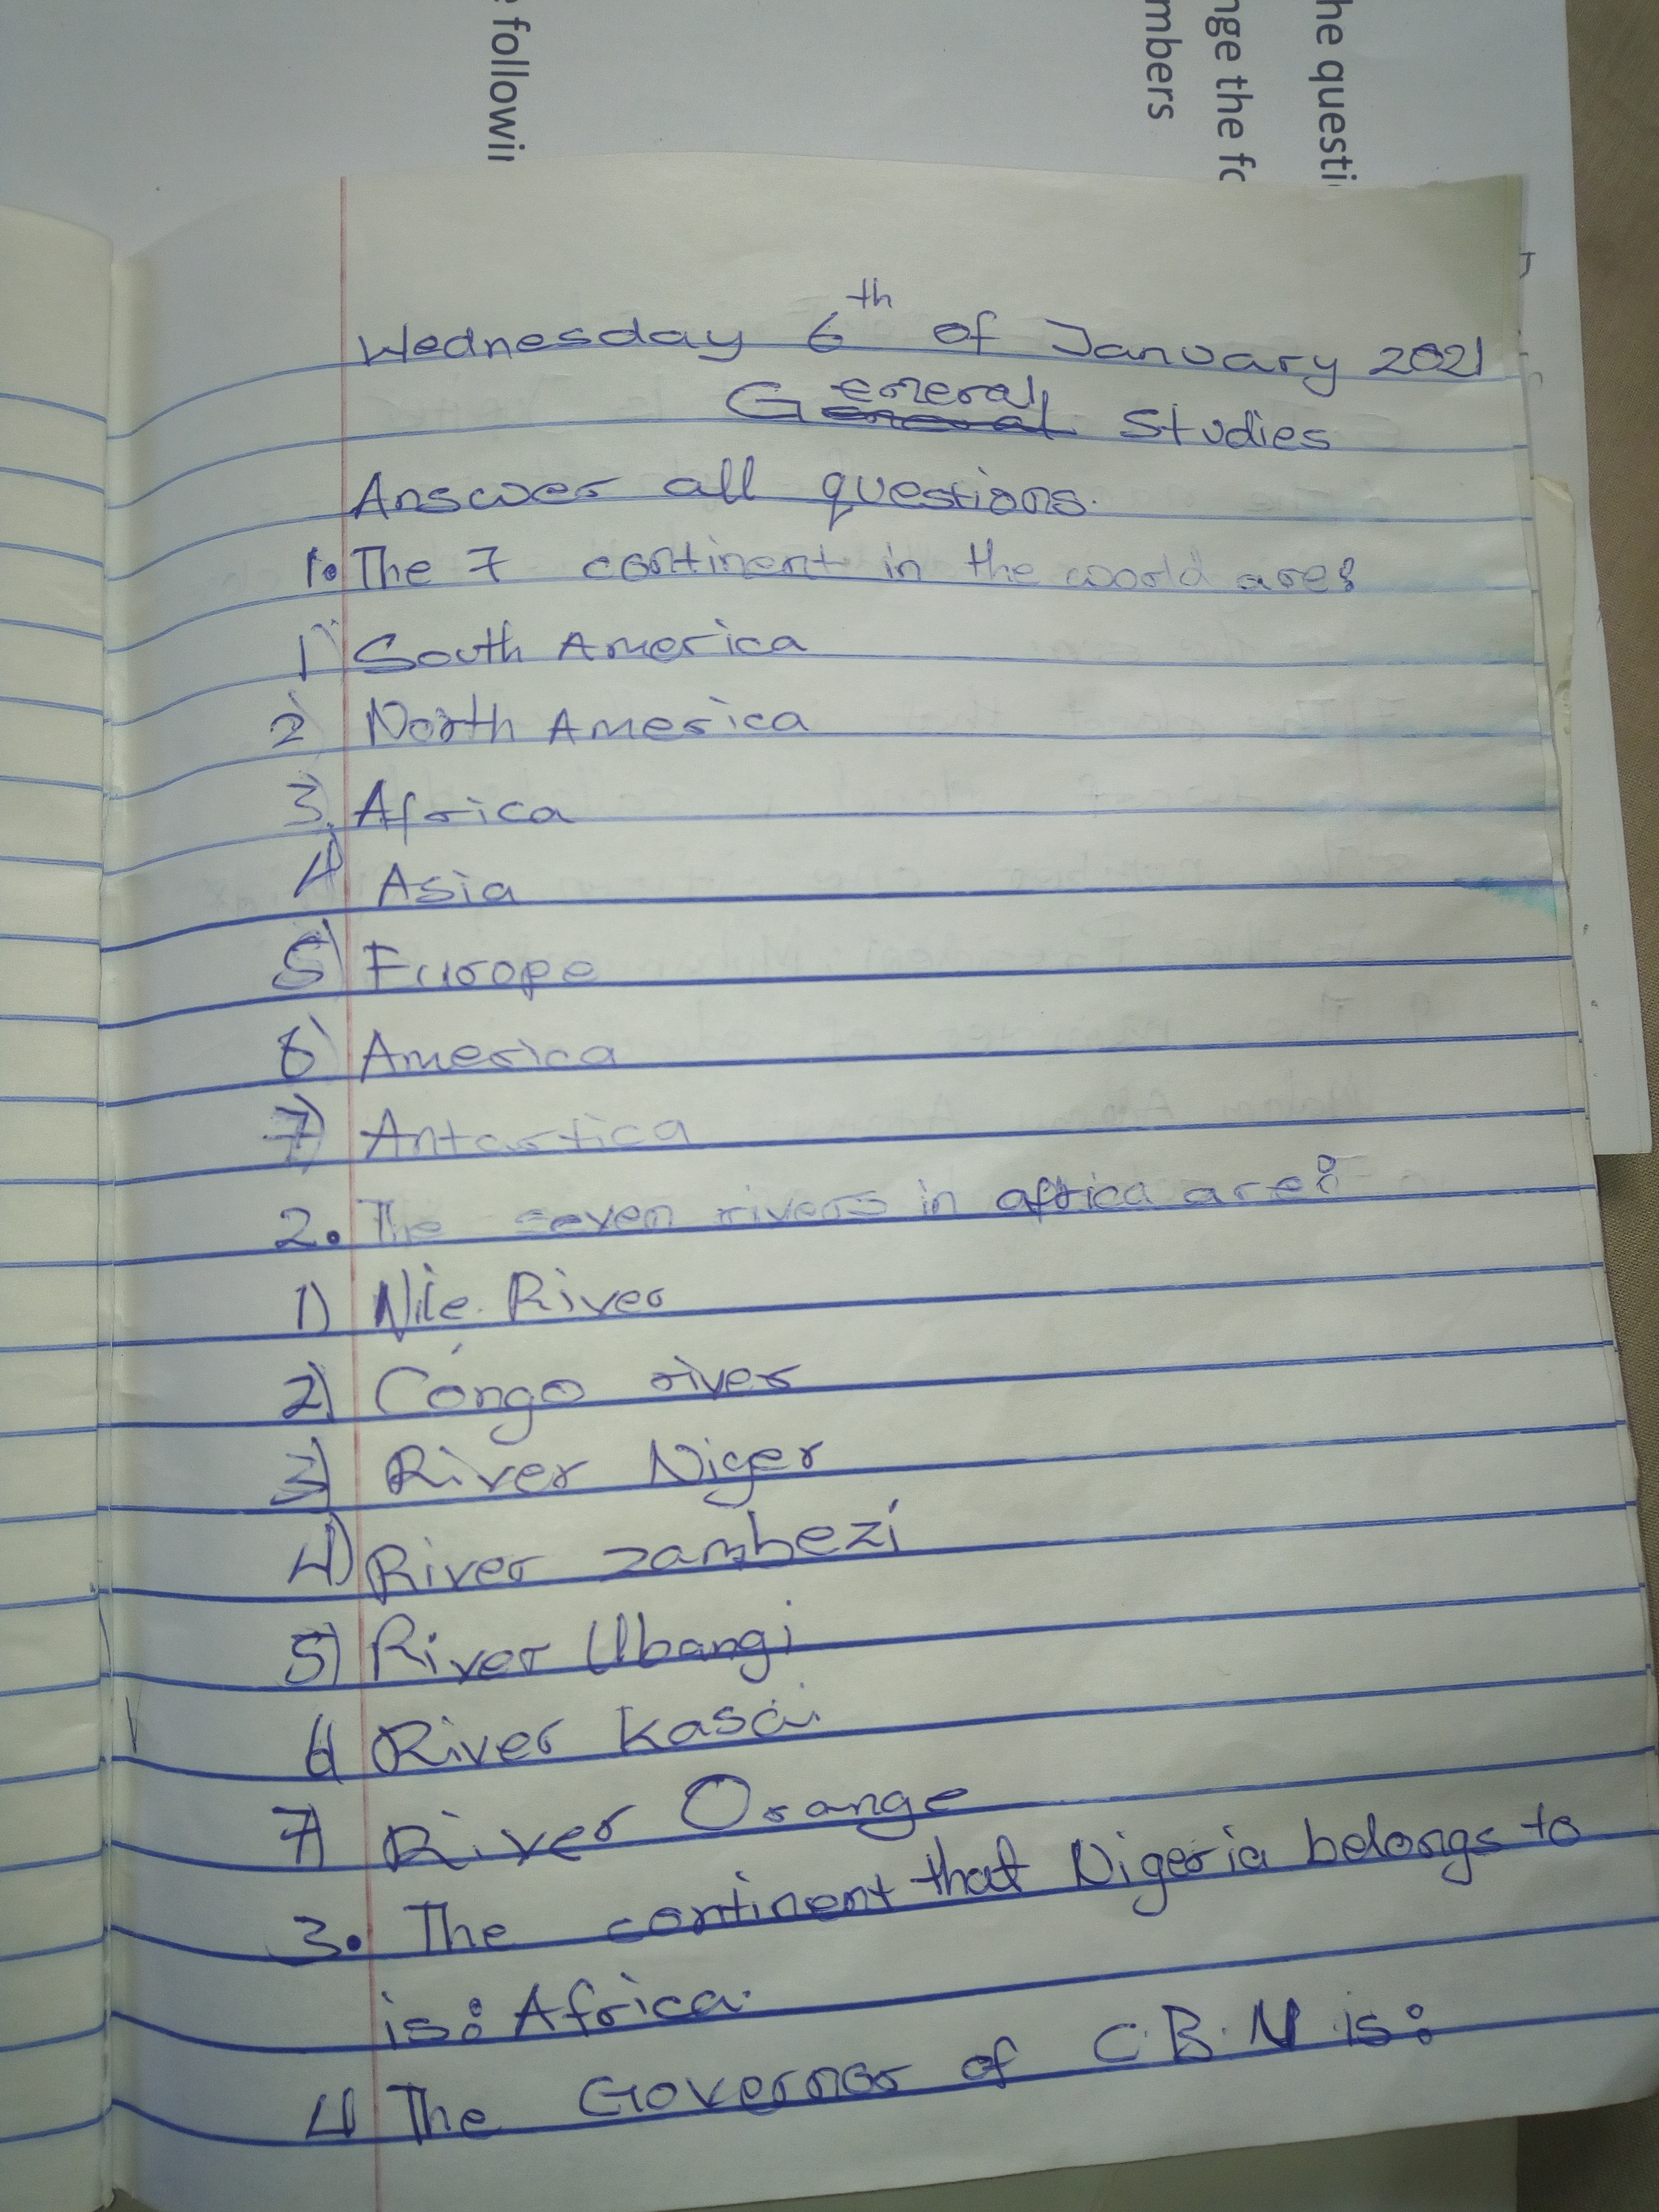 he questi
nge the fo
mbers
e followin
Wednesday 6th of January 2021
General Studies
Answer all questions.
1. The 7 continent in the world are:
1) South America
2) North America
3) Africa
4) Asia
5) Europe
6) America
7) Antartica
2. The seven rivers in africa are:
1) Nile River
2) Congo river
3) River Niger
4) River zambezi
5) River Ubangi
6) River kasai
7) River Orange
3. The continent that Nigeria belongs to
is: Africa.
4) The Governor of C.B.N is: